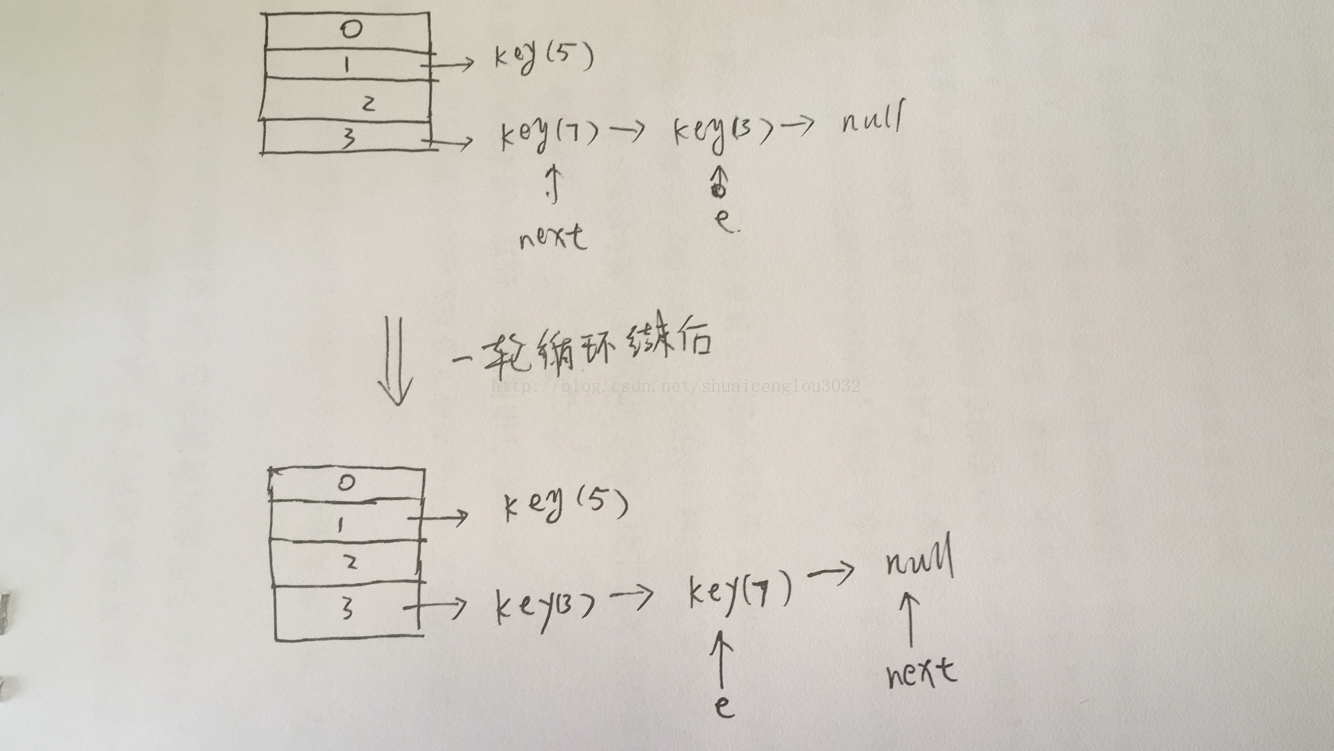 0
1 → key(5)
2
3 → key(7) → key(3) → null
next
e
一轮循环结束后
http://blog.csdn.net/shuaicenglou3032
0
1 → key(5)
2
3 → key(3) → key(7) → null
e
next